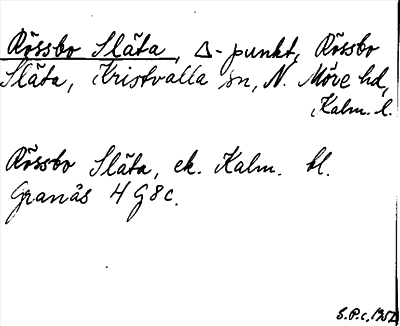 Rössbo Släta, Δ-punkt, Rössbo
Släta, Kristvalla sn, N. Möre hd,
Kalm. l.
Rössbo Släta, ek. Kalm. bl.
Granås 4 G 8 c.
S.P.c.